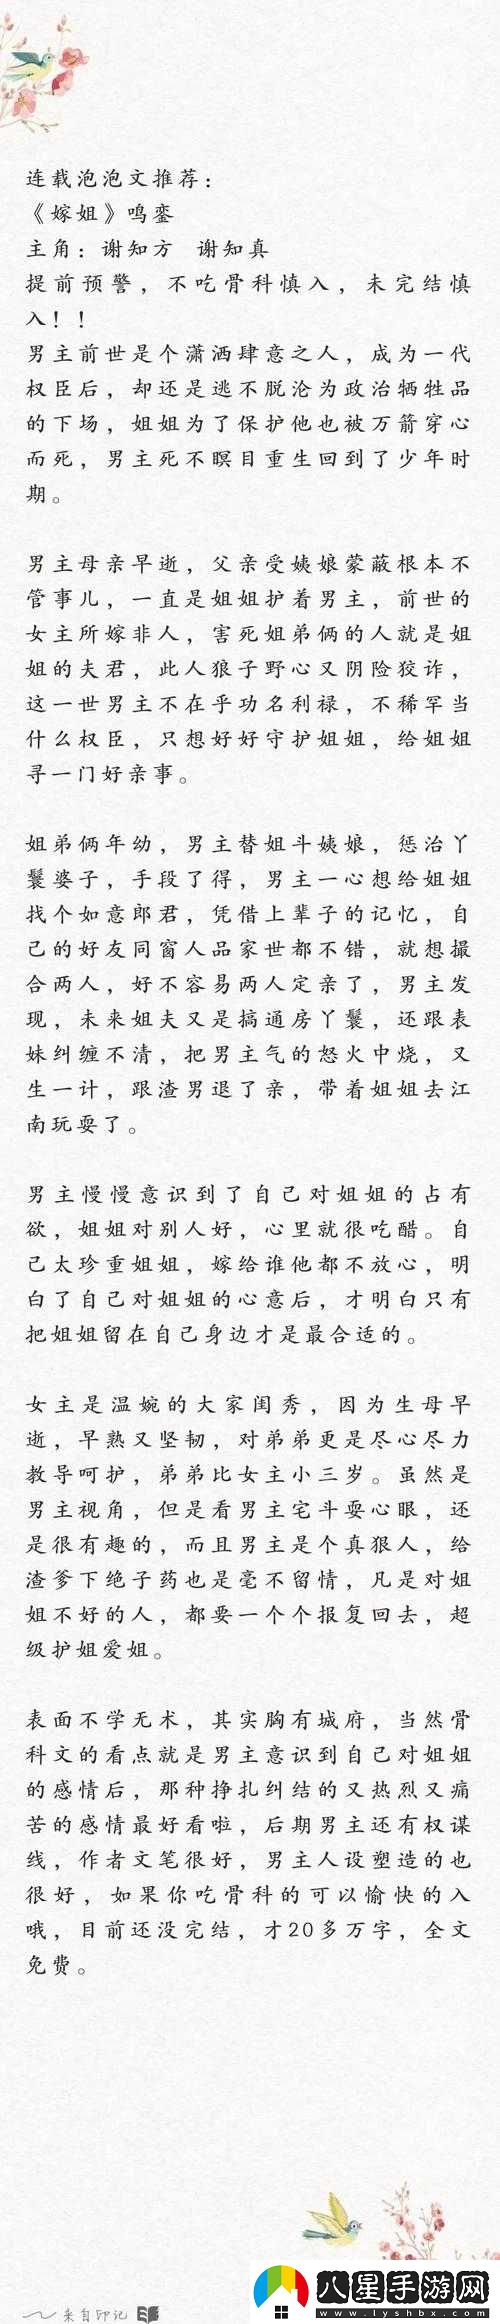 连载泡泡文推荐：
《嫁姐》鸣銮
主角：谢知方 谢知真
提前预警，不吃骨科慎入，未完结慎
入！！
男主前世是个潇洒肆意之人，成为一代
权臣后，却还是逃不脱沦为政治牺牲品
的下场，姐姐为了保护他也被万箭穿心
而死，男主死不瞑目重生回到了少年时
期。
男主母亲早逝，父亲受姨娘蒙蔽根本不
管事儿，一直是姐姐护着男主，前世的
女主所嫁非人，害死姐弟俩的人就是姐
姐的夫君，此人狼子野心又阴险狡诈，
这一世男主不在乎功名利禄，不稀罕当
什么权臣，只想好好守护姐姐，给姐姐
寻一门好亲事。
姐弟俩年幼，男主替姐斗姨娘，惩治丫
鬟婆子，手段了得，男主一心想给姐姐
找个如意郎君，凭借上辈子的记忆，自
己的好友同窗人品家世都不错，就想撮
合两人，好不容易两人定亲了，男主发
现，未来姐夫又是搞通房丫鬟，还跟表
妹纠缠不清，把男主气的怒火中烧，又
生一计，跟渣男退了亲，带着姐姐去江
南玩耍了。
男主慢慢意识到了自己对姐姐的占有
欲，姐姐对别人好，心里就很吃醋。自
己太珍重姐姐，嫁给谁他都不放心，明
白了自己对姐姐的心意后，才明白只有
把姐姐留在自己身边才是最合适的。
女主是温婉的大家闺秀，因为生母早
逝，早熟又坚韧，对弟弟更是尽心尽力
教导呵护，弟弟比女主小三岁。虽然是
男主视角，但是看男主宅斗耍心眼，还
是很有趣的，而且男主是个真狠人，给
渣爹下绝子药也是毫不留情，凡是对姐
姐不好的人，都要一个个报复回去，超
级护姐爱姐。
表面不学无术，其实胸有城府，当然骨
科文的看点就是男主意识到自己对姐姐
的感情后，那种挣扎纠结的又热烈又痛
苦的感情最好看啦，后期男主还有权谋
线，作者文笔很好，男主人设塑造的也
很好，如果你吃骨科的可以愉快的入
哦，目前还没完结，才20多万字，全文
免费。
来自印记
八星手游网
www.lyshbx.com